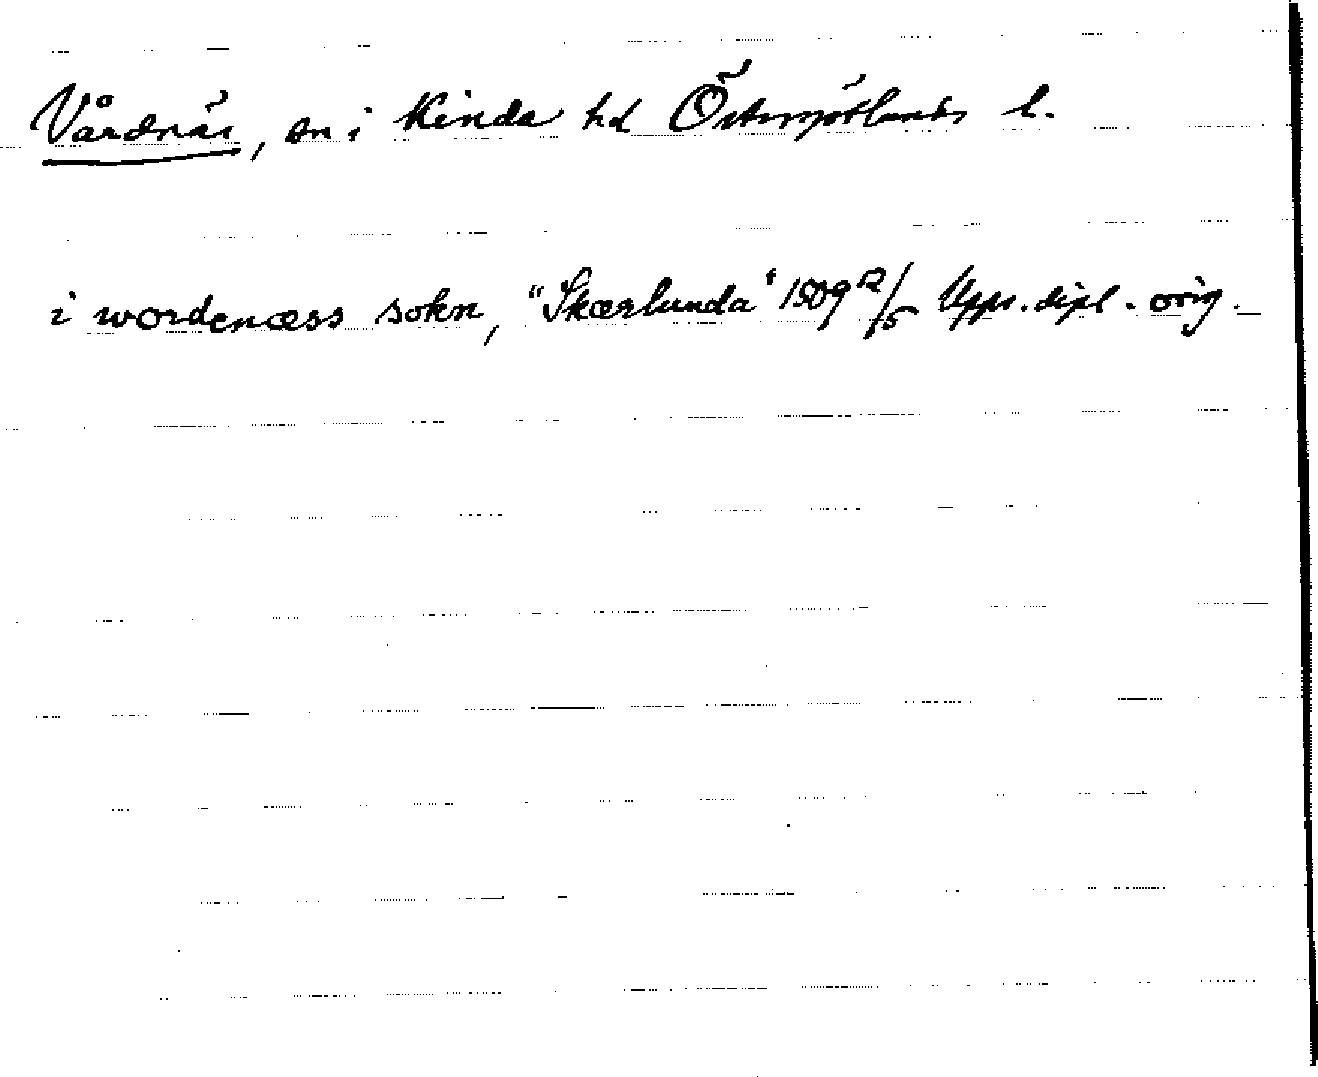 Vårdnäs, sn i Kinda hd Östergötlands l.
i wordenæss sokn, "Skærlunda" 1509 12/5 Upps. dipl. orig.